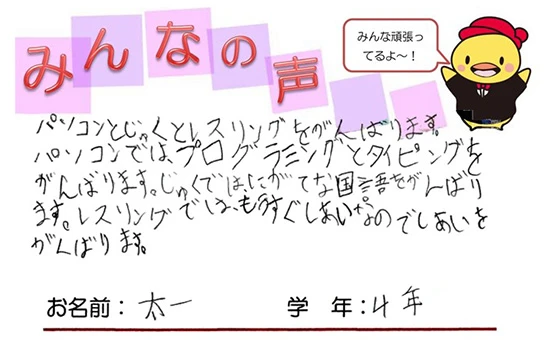 みんなの声
みんな頑張っ
てるよ～！
パソコンとじゅくとレスリングをがんばります。
パソコンでは、プログラミングとタイピングを
がんばります。じゅくでは、にがてな国語をがんばり
ます。レスリングでは、もうすぐしあいなのでしあいを
がんばります。
お名前：太一　学　年：4年